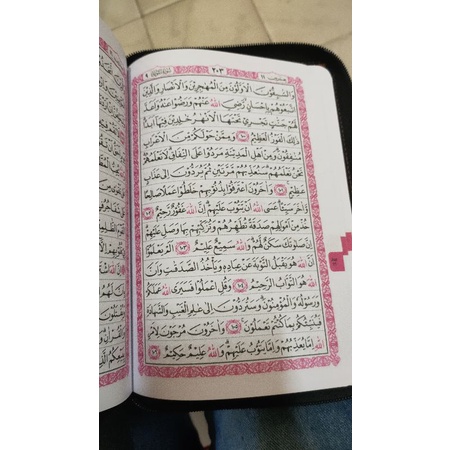 سُورَةُ التَّوْبَةِ ٩ ٢٠٣ ١١
وَالسَّٰبِقُونَ الْأَوَّلُونَ مِنَ الْمُهَٰجِرِينَ وَالْأَنْصَارِ وَالَّذِينَ
اتَّبَعُوهُمْ بِإِحْسَٰنٍ رَّضِيَ اللّٰهُ عَنْهُمْ وَرَضُوا عَنْهُ وَأَعَدَّ
لَهُمْ جَنَّٰتٍ تَجْرِي تَحْتَهَا الْأَنْهَٰرُ خَٰلِدِينَ فِيهَآ أَبَدًا
ذَٰلِكَ الْفَوْزُ الْعَظِيمُ ١٠٠ وَمِمَّنْ حَوْلَكُمْ مِّنَ الْأَعْرَابِ
مُنَٰفِقُونَ وَمِنْ أَهْلِ الْمَدِينَةِ مَرَدُوا عَلَى النِّفَاقِ لَا تَعْلَمُهُمْ
نَحْنُ نَعْلَمُهُمْ سَنُعَذِّبُهُمْ مَّرَّتَيْنِ ثُمَّ يُرَدُّونَ إِلَىٰ عَذَابٍ
عَظِيمٍ ١٠١ وَءَاخَرُونَ اعْتَرَفُوا بِذُنُوبِهِمْ خَلَطُوا عَمَلًا صَٰلِحًا
وَءَاخَرَ سَيِّئًا عَسَى اللّٰهُ أَنْ يَتُوبَ عَلَيْهِمْ إِنَّ اللّٰهَ غَفُورٌ رَّحِيمٌ ١٠٢
خُذْ مِنْ أَمْوَٰلِهِمْ صَدَقَةً تُطَهِّرُهُمْ وَتُزَكِّيهِمْ بِهَا وَصَلِّ عَلَيْهِمْ
إِنَّ صَلَوٰتَكَ سَكَنٌ لَّهُمْ وَاللّٰهُ سَمِيعٌ عَلِيمٌ ١٠٣ أَلَمْ يَعْلَمُوٓا
أَنَّ اللّٰهَ هُوَ يَقْبَلُ التَّوْبَةَ عَنْ عِبَادِهِ وَيَأْخُذُ الصَّدَقَٰتِ وَأَنَّ
اللّٰهَ هُوَ التَّوَّابُ الرَّحِيمُ ١٠٤ وَقُلِ اعْمَلُوا فَسَيَرَى اللّٰهُ عَمَلَكُمْ
وَرَسُولُهُ وَالْمُؤْمِنُونَ وَسَتُرَدُّونَ إِلَىٰ عَٰلِمِ الْغَيْبِ وَالشَّهَٰدَةِ
فَيُنَبِّئُكُمْ بِمَا كُنْتُمْ تَعْمَلُونَ ١٠٥ وَءَاخَرُونَ مُرْجَوْنَ لِأَمْرِ
اللّٰهِ إِمَّا يُعَذِّبُهُمْ وَإِمَّا يَتُوبُ عَلَيْهِمْ وَاللّٰهُ عَلِيمٌ حَكِيمٌ ١٠٦